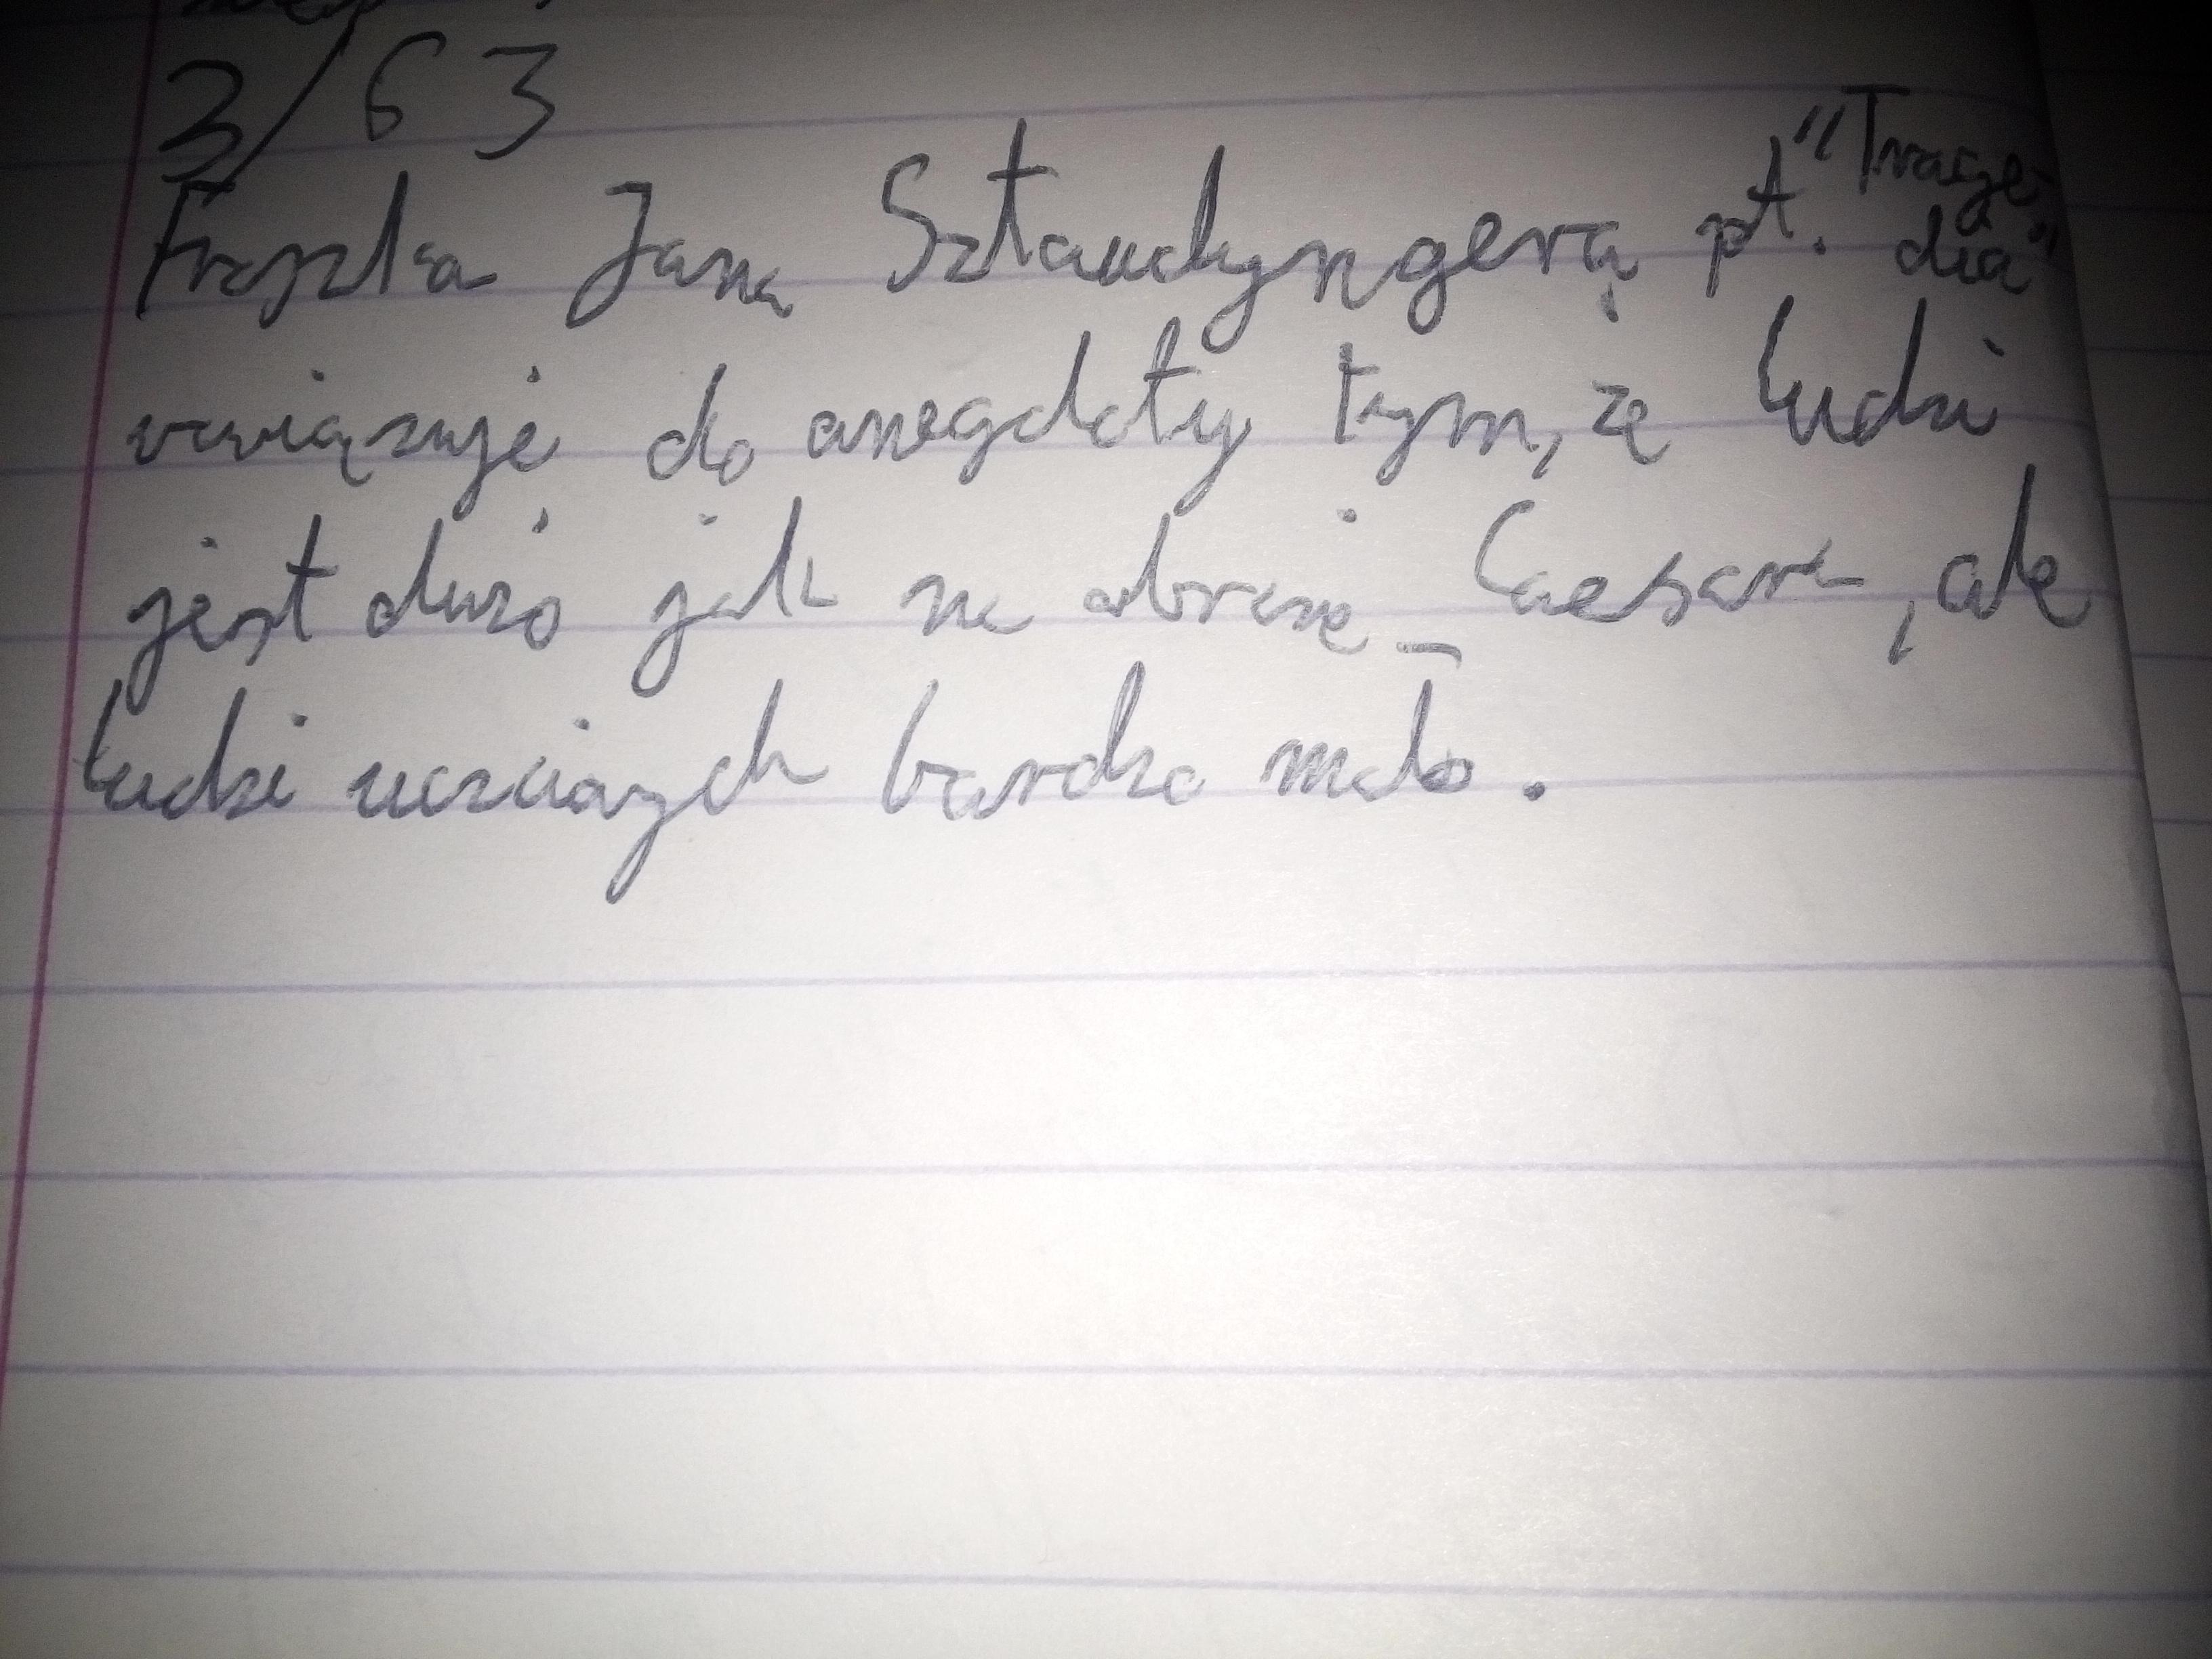 3/63
Fraszka Jana Sztaudyngera pt. "Tragedia"
nawiązuje do anegdoty tym, że ludzi
jest dużo jak na obrazie Caesara, ale
ludzi uczciwych bardzo mało.